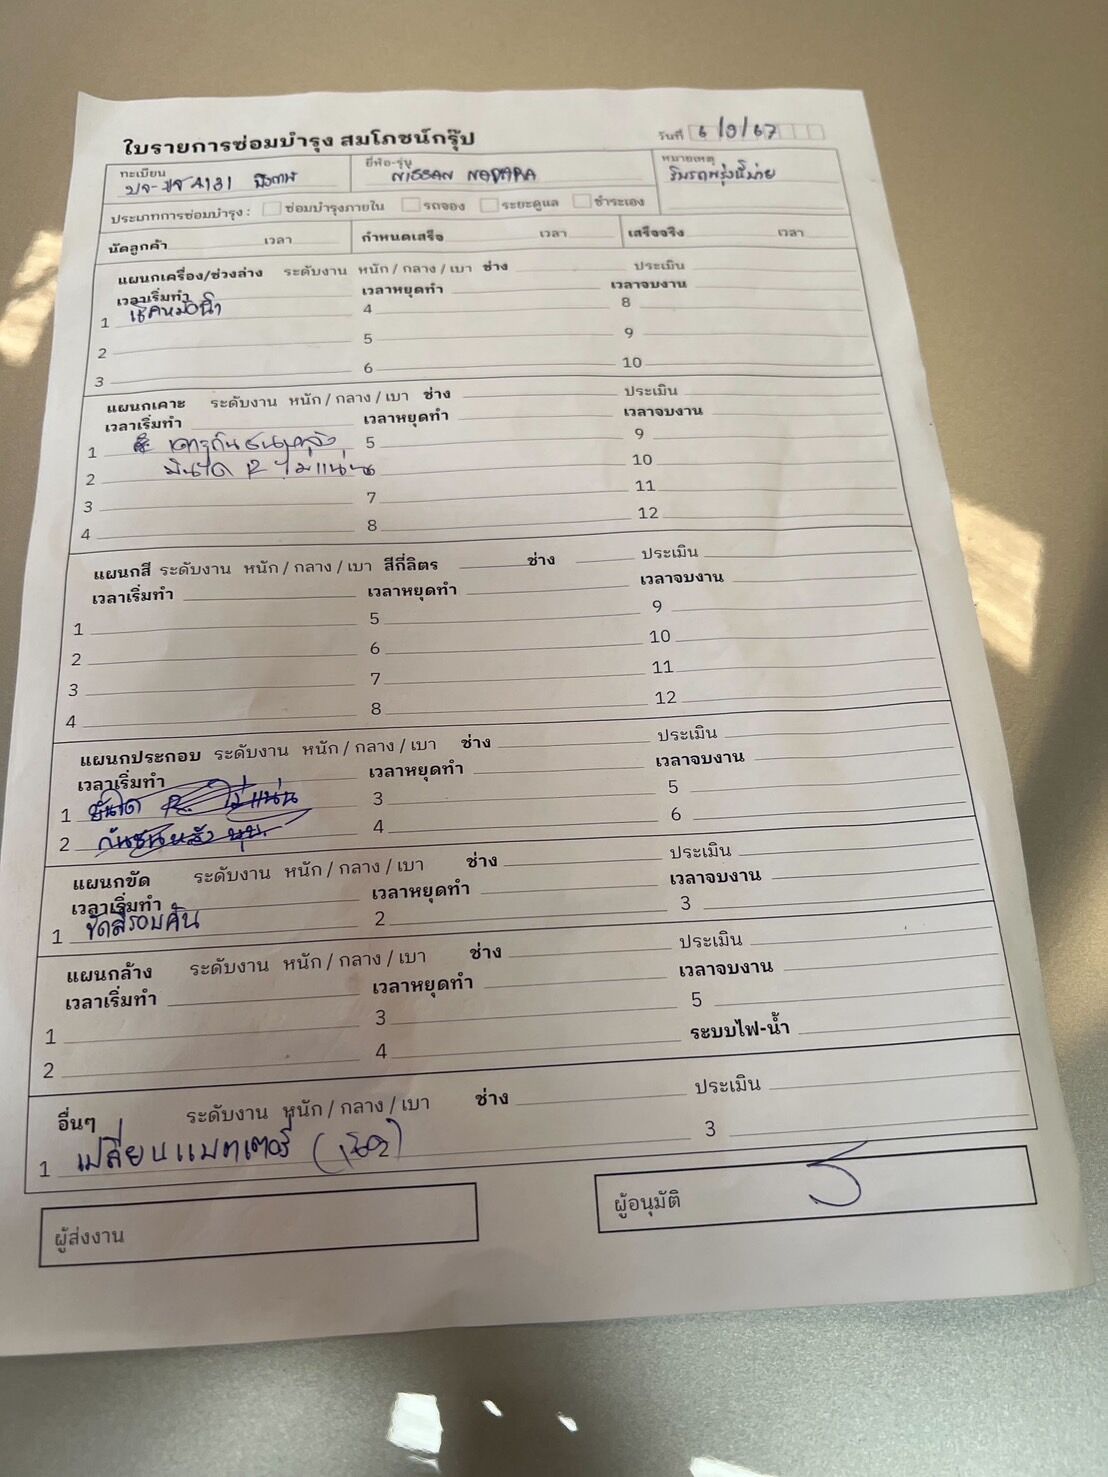 ใบรายการซ่อมบำรุง สมโภชน์กรุ๊ป
วันที่ 6/9/67
ทะเบียน 4131
ยี่ห้อ-รุ่น NISSAN NAVARA
หมายเหตุ รับรถพรุ่งนี้บ่าย
ประเภทการซ่อมบำรุง : ซ่อมบำรุงภายใน รถจอง ระยะดูแล ชำระเอง
นัดลูกค้า เวลา กำหนดเสร็จ เวลา เสร็จจริง เวลา
แผนกเครื่อง/ช่วงล่าง ระดับงาน หนัก / กลาง / เบา ช่าง ประเมิน
เวลาเริ่มทำ เวลาหยุดทำ เวลาจบงาน
1 เช็คหม้อน้ำ 4 8
2 5 9
3 6 10
แผนกเคาะ ระดับงาน หนัก / กลาง / เบา ช่าง ประเมิน
เวลาเริ่มทำ เวลาหยุดทำ เวลาจบงาน
1 เคาะกันชนหลัง 5 9
2 บันได R ไม่แน่น 6 10
3 7 11
4 8 12
แผนกสี ระดับงาน หนัก / กลาง / เบา สีกี่ลิตร ช่าง ประเมิน
เวลาเริ่มทำ เวลาหยุดทำ เวลาจบงาน
1 5 9
2 6 10
3 7 11
4 8 12
แผนกประกอบ ระดับงาน หนัก / กลาง / เบา ช่าง ประเมิน
เวลาเริ่มทำ เวลาหยุดทำ เวลาจบงาน
1 บันได R ไม่แน่น 3 5
2 กันชนหลัง บุบ 4 6
แผนกขัด ระดับงาน หนัก / กลาง / เบา ช่าง ประเมิน
เวลาเริ่มทำ เวลาหยุดทำ เวลาจบงาน
1 ขัดสีรอบคัน 2 3
แผนกล้าง ระดับงาน หนัก / กลาง / เบา ช่าง ประเมิน
เวลาเริ่มทำ เวลาหยุดทำ เวลาจบงาน
1 3 5
2 4 ระบบไฟ-น้ำ
อื่นๆ ระดับงาน หนัก / กลาง / เบา ช่าง ประเมิน
1 เปลี่ยนแบตเตอรี่ 2 3
ผู้ส่งงาน ผู้อนุมัติ